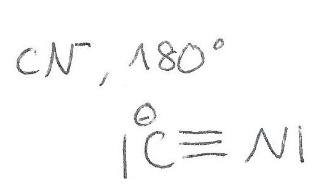 CN⁻, 180°
|C≡N|
⊖